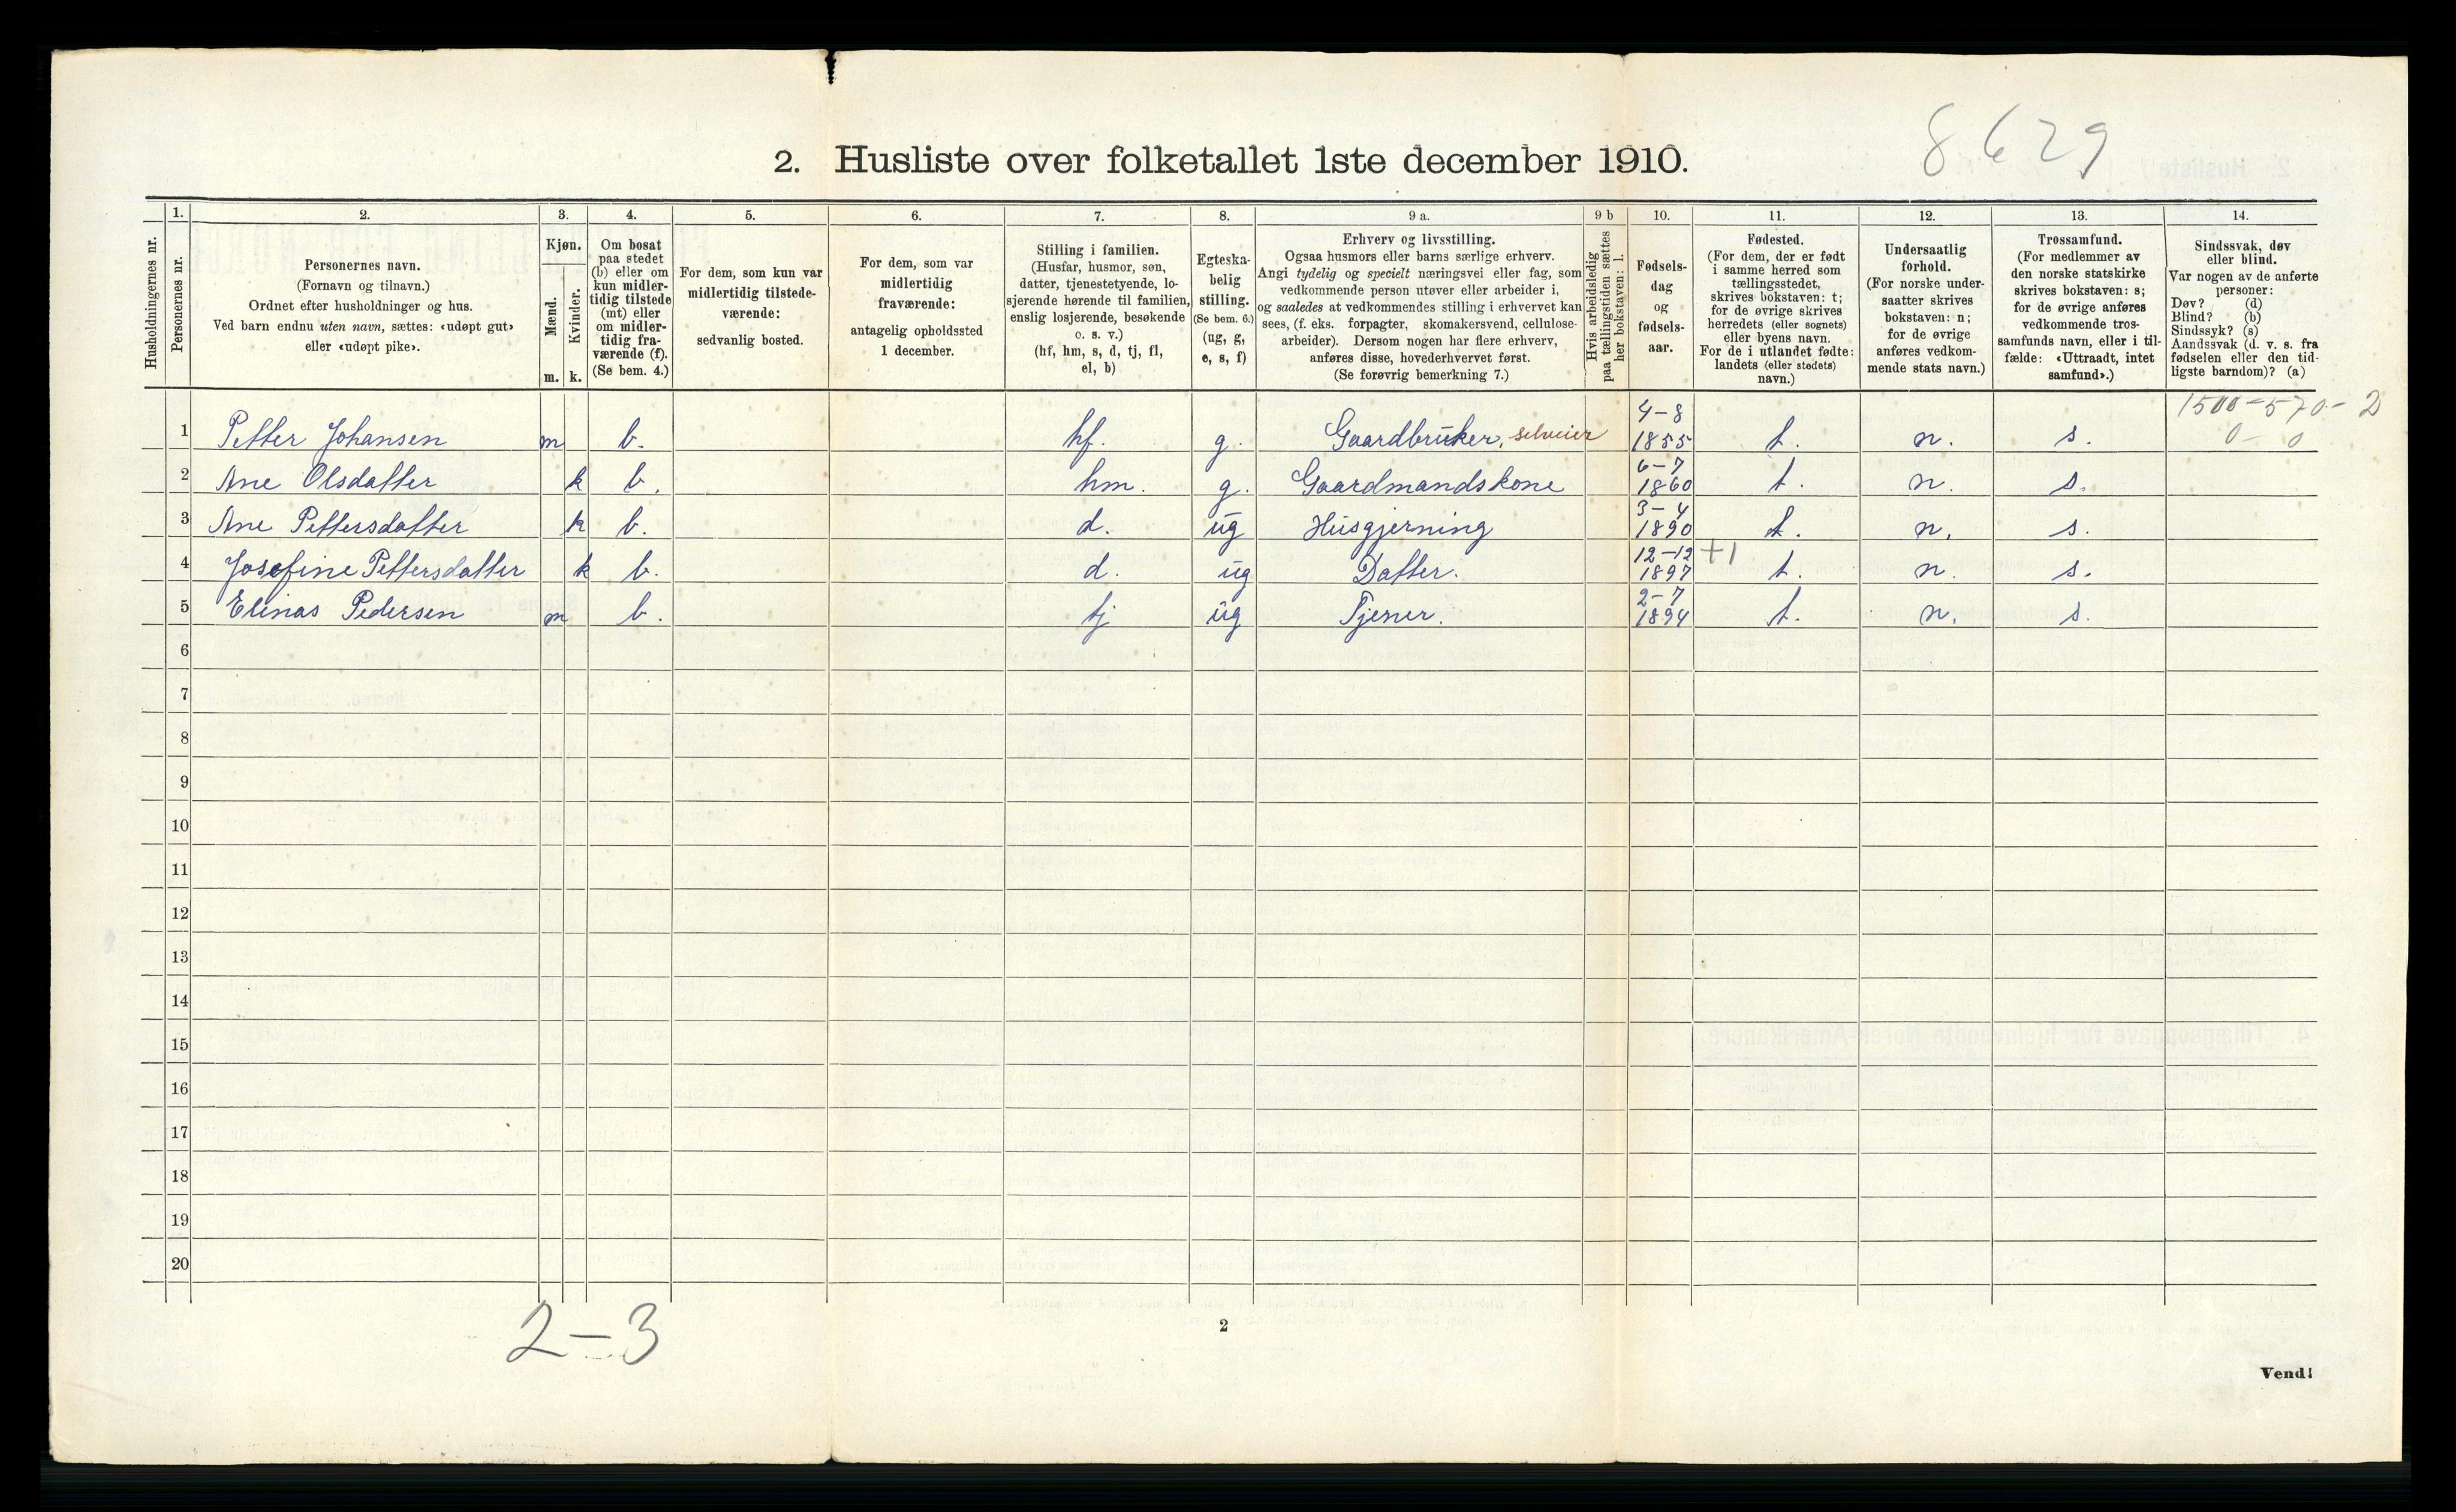 8629
2. Husliste over folketallet 1ste december 1910.
Husholdningernes nr.
1.
Personernes nr.
2.
Personernes navn.
(Fornavn og tilnavn.)
Ordnet efter husholdninger og hus.
Ved barn endnu uten navn, sættes: «udøpt gut»
eller «udøpt pike».
3.
Kjøn.
Mænd.
Kvinder.
m. k.
4.
Om bosat
paa stedet
(b) eller om
kun midler-
tidig tilstede
(mt) eller
om midler-
tidig fra-
værende (f).
(Se bem. 4.)
5.
For dem, som kun var
midlertidig tilstede-
værende:
sedvanlig bosted.
6.
For dem, som var
midlertidig
fraværende:
antagelig opholdssted
1 december.
7.
Stilling i familien.
(Husfar, husmor, søn,
datter, tjenestetyende, lo-
sjerende hørende til familien,
enslig losjerende, besøkende
o. s. v.)
(hf, hm, s, d, tj, fl,
el, b)
8.
Egteska-
belig
stilling.
(Se bem. 6.)
(ug, g,
e, s, f)
9 a.
Erhverv og livsstilling.
Ogsaa husmors eller barns særlige erhverv.
Angi tydelig og specielt næringsvei eller fag, som
vedkommende person utøver eller arbeider i,
og saaledes at vedkommendes stilling i erhvervet kan
sees, (f. eks. forpagter, skomakersvend, cellulose-
arbeider). Dersom nogen har flere erhverv,
anføres disse, hovederhvervet først.
(Se forøvrig bemerkning 7.)
9 b
Hvis arbeidsledig
paa tællingstiden sættes
her bokstaven: l.
10.
Fødsels-
dag
og
fødsels-
aar.
11.
Fødested.
(For dem, der er født
i samme herred som
tællingsstedet,
skrives bokstaven: t;
for de øvrige skrives
herredets (eller sognets)
eller byens navn.
For de i utlandet fødte:
landets (eller stedets)
navn.)
12.
Undersaatlig
forhold.
(For norske under-
saatter skrives
bokstaven: n;
for de øvrige
anføres vedkom-
mende stats navn.)
13.
Trossamfund.
(For medlemmer av
den norske statskirke
skrives bokstaven: s;
for de øvrige anføres
vedkommende tros-
samfunds navn, eller i til-
fælde: «Uttraadt, intet
samfund».)
14.
Sindssvak, døv
eller blind.
Var nogen av de anførte
personer:
Døv? (d)
Blind? (b)
Sindssyk? (s)
Aandssvak (d. v. s. fra
fødselen eller den tid-
ligste barndom)? (a)
1500-570-2
0 - 0
1 Petter Johansen m b. hf. g. Gaardbruker, selveier 4-8 1855 t. n. s.
2 Ane Olsdatter k b. hm. g. Gaardmandskone 6-7 1860 t. n. s.
3 Ane Pettersdatter k b. d. ug Husgjerning 3-4 1890 t. n. s.
4 Josefine Pettersdatter k b. d. ug Datter. 12-12 1897 +1 t. n. s.
5 Elinas Pedersen m b. tj ug Tjener. 2-7 1894 t. n. s.
6
7
8
9
10
11
12
13
14
15
16
17
18
19
20
2-3
2
Vend!